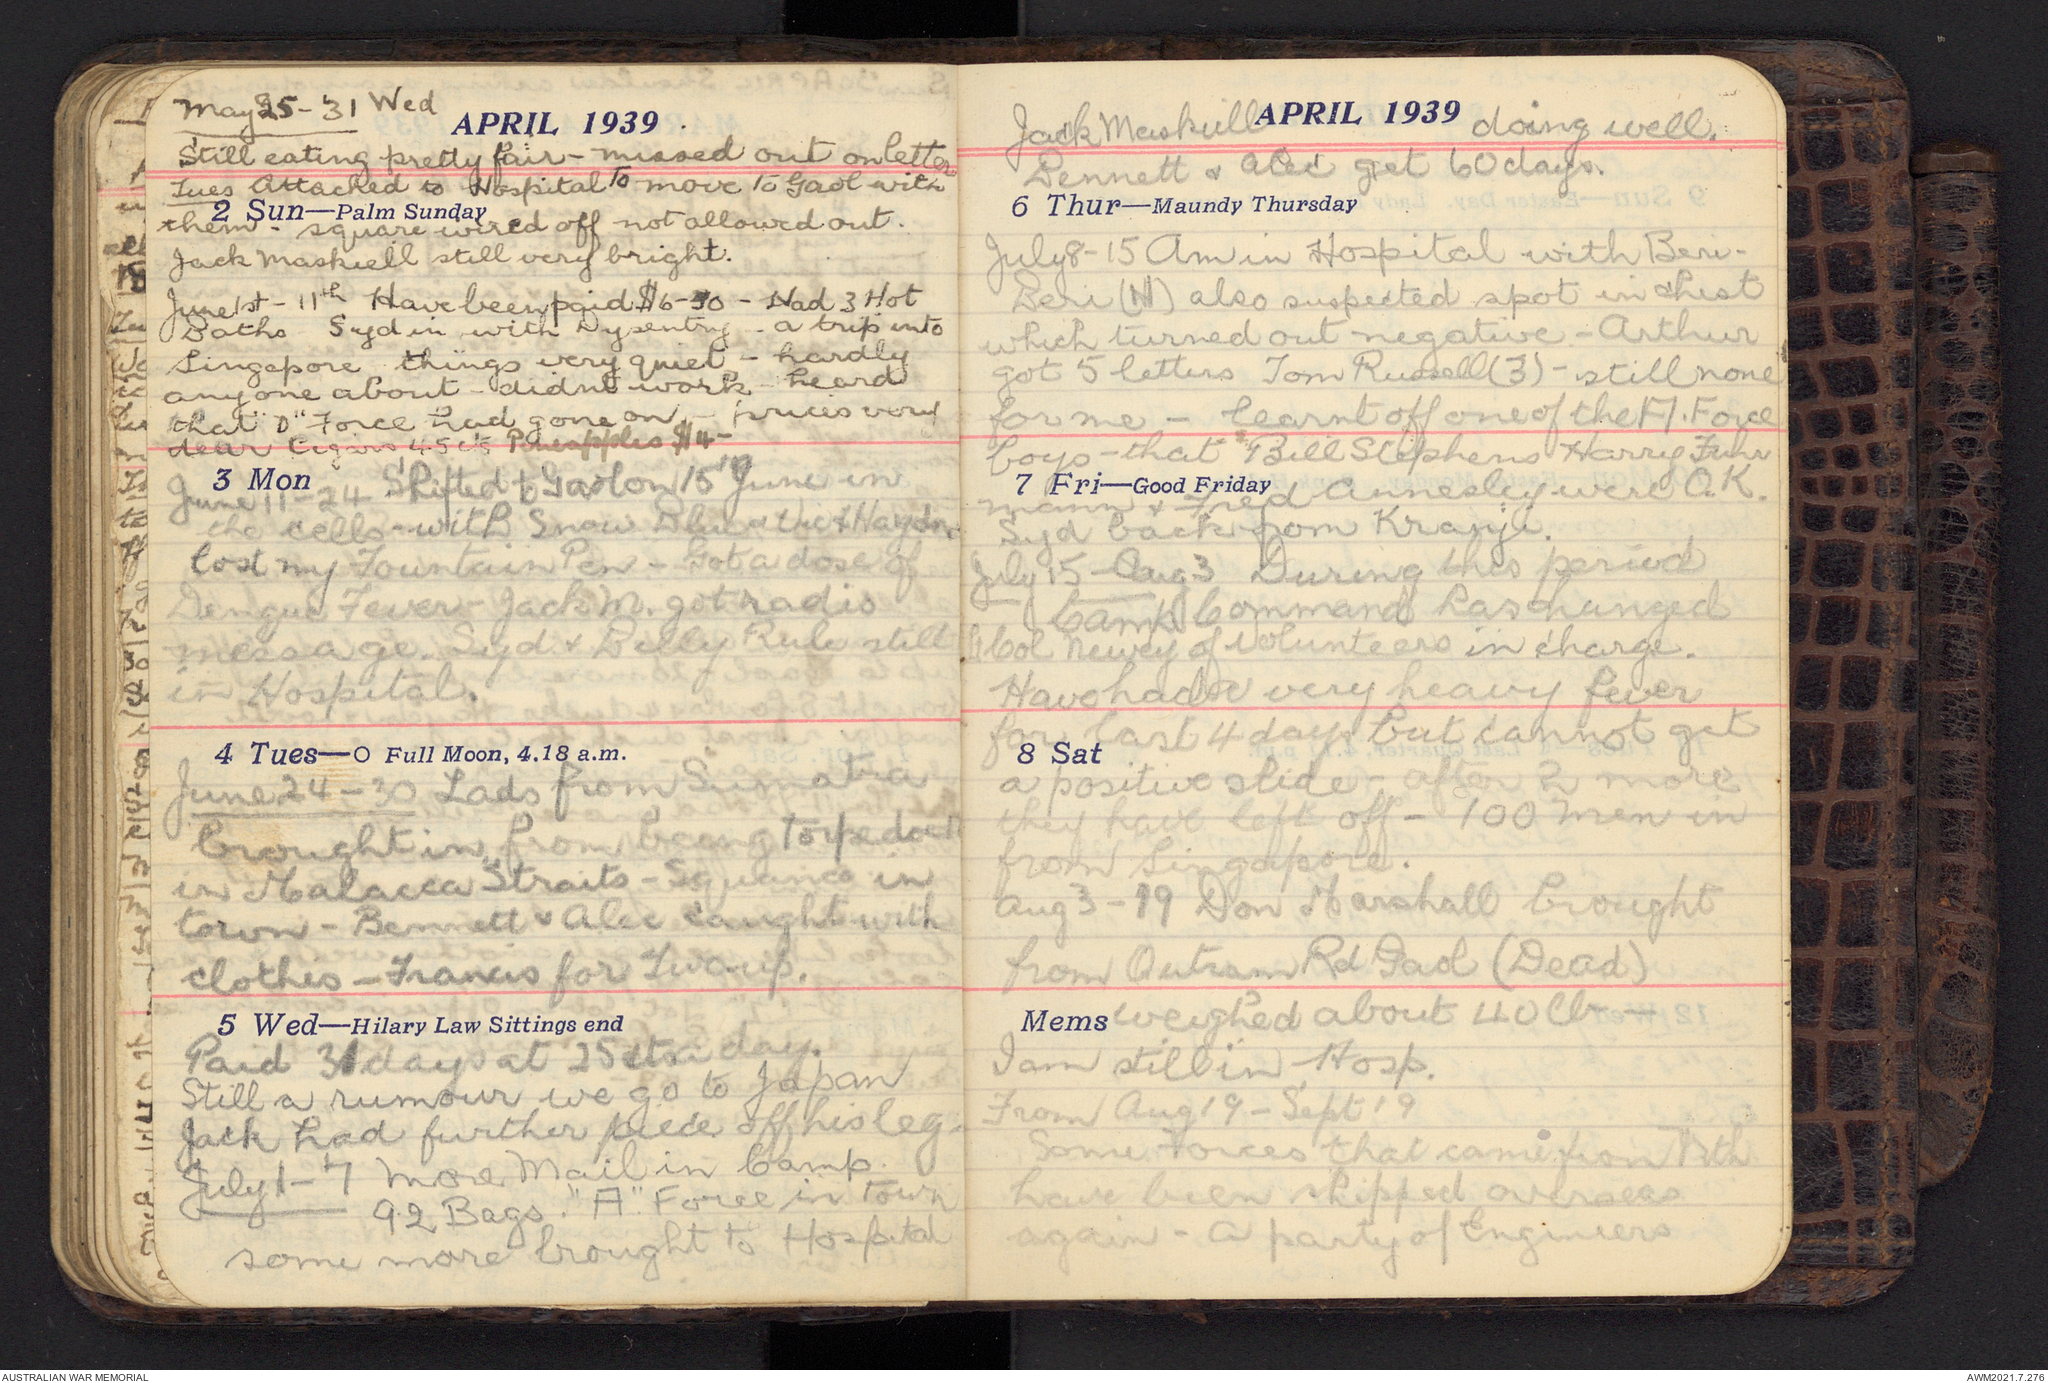 May 25 - 31 Wed
APRIL 1939
Still eating pretty fair - missed out on letter
Tues Attached to Hospital to move to Gaol with
2 Sun—Palm Sunday
them - square wired off not allowed out.
Jack Maskiell still very bright.
June 1st - 11th Have been paid $6-30 - Had 3 Hot
Baths Syd in with Dysentry - a trip into
Singapore things very quiet - hardly
anyone about - didnt work - heard
that "D" Force had gone on - prices very
dear 45cts Pineapples $4-
3 Mon
June 11 - 24 Shifted to Gaol on 15th June in
the cells - with Snow Blue & Vic & Haydn.
lost my Fountain Pen - Got a dose of
Dengue Fever - Jack M. got radio
message. Syd & Billy Rule still
in Hospital.
4 Tues—O Full Moon, 4.18 a.m.
June 24 - 30 Lads from Sumatra
brought in from being Torpedoed
in Malacca Straits - Squance in
town - Bennett & Alec caught with
clothes - Francis for Two-up.
5 Wed—Hilary Law Sittings end
Paid 31 days at 25cts a day.
Still a rumour we go to Japan
Jack had further piece off his leg -
July 1 - 7 More Mail in Camp.
92 Bags. "A" Force in Town
some more brought to Hospital
APRIL 1939
Jack Maskiell doing well.
Bennett & Alec get 60 days.
6 Thur—Maundy Thursday
July 8 - 15 Am in Hospital with Beri-
Beri (N) also suspected spot in chest
which turned out negative - Arthur
got 5 letters Tom Russell (3) - still none
for me - learnt off one of the Force
boys - that Bill Stephens Harry Fuhr
7 Fri—Good Friday
mann & Fred Annesley were O.K.
Syd back from Kranji.
July 15 - Aug 3 During this period
Camp Command has changed
Lt Col Newey of Volunteers in charge.
Have had a very heavy fever
for last 4 days but cannot get
8 Sat
a positive slide - after 2 more
they have left off - 100 men in
from Singapore.
Aug 3 - 19 Don Marshall brought
from Outram Rd Gaol (Dead)
Mems weighed about 40 lbs -
I am still in Hosp.
From Aug 19 - Sept 19
Some Forces that came from Nth
have been shipped overseas
again - a party of Engineers
AUSTRALIAN WAR MEMORIAL
AWM2021.7.276